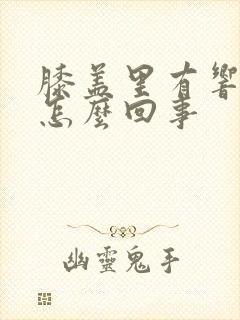 膝盖里有響
怎麼回事
幽靈鬼手